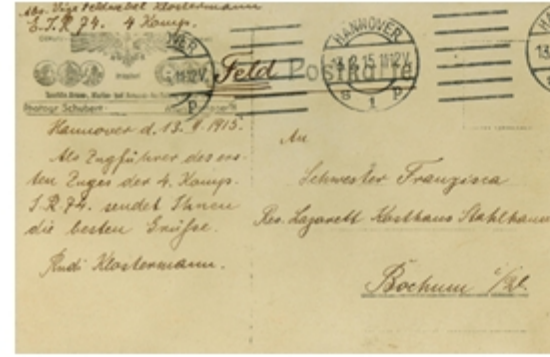 Abs. Vizefeldwebel Klostermann
E.I.R 74. 4 Komp.
Feld Postkarte
HANNOVER
13.2.15.11-12V.
S 1 p
Photogr Schubert
Hannover d. 13. 2. 1915.
Als Zugführer des ers-
ten Zuges der 4. Komp.
I.R. 74. sendet Ihnen
die besten Grüße.
Rudi Klostermann.
An
Schwester Franzisca
Res. Lazarett Kosthaus Stahlhausen
Bochum i/W.